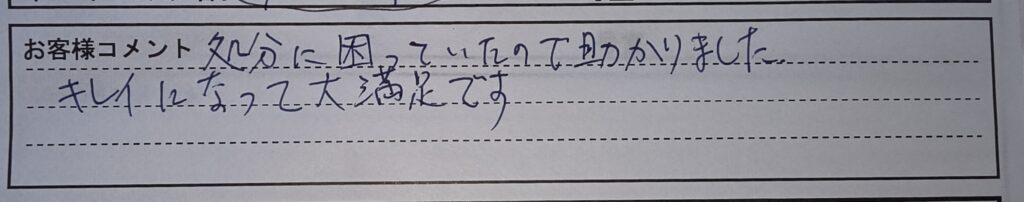 お客様コメント 処分に困っていたので助かりました
キレイになって大満足です